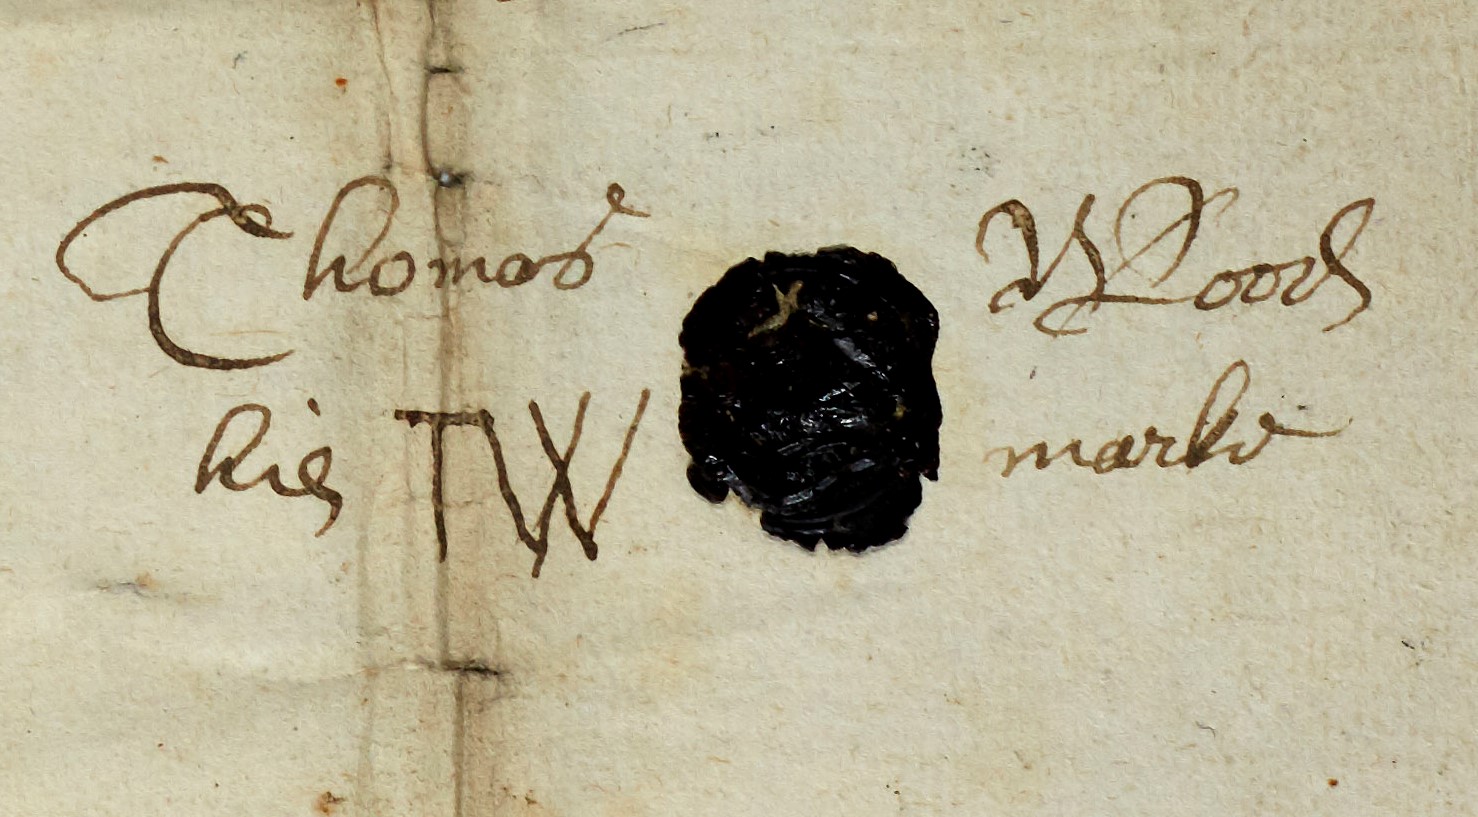 Thomas Woods
his TW marke